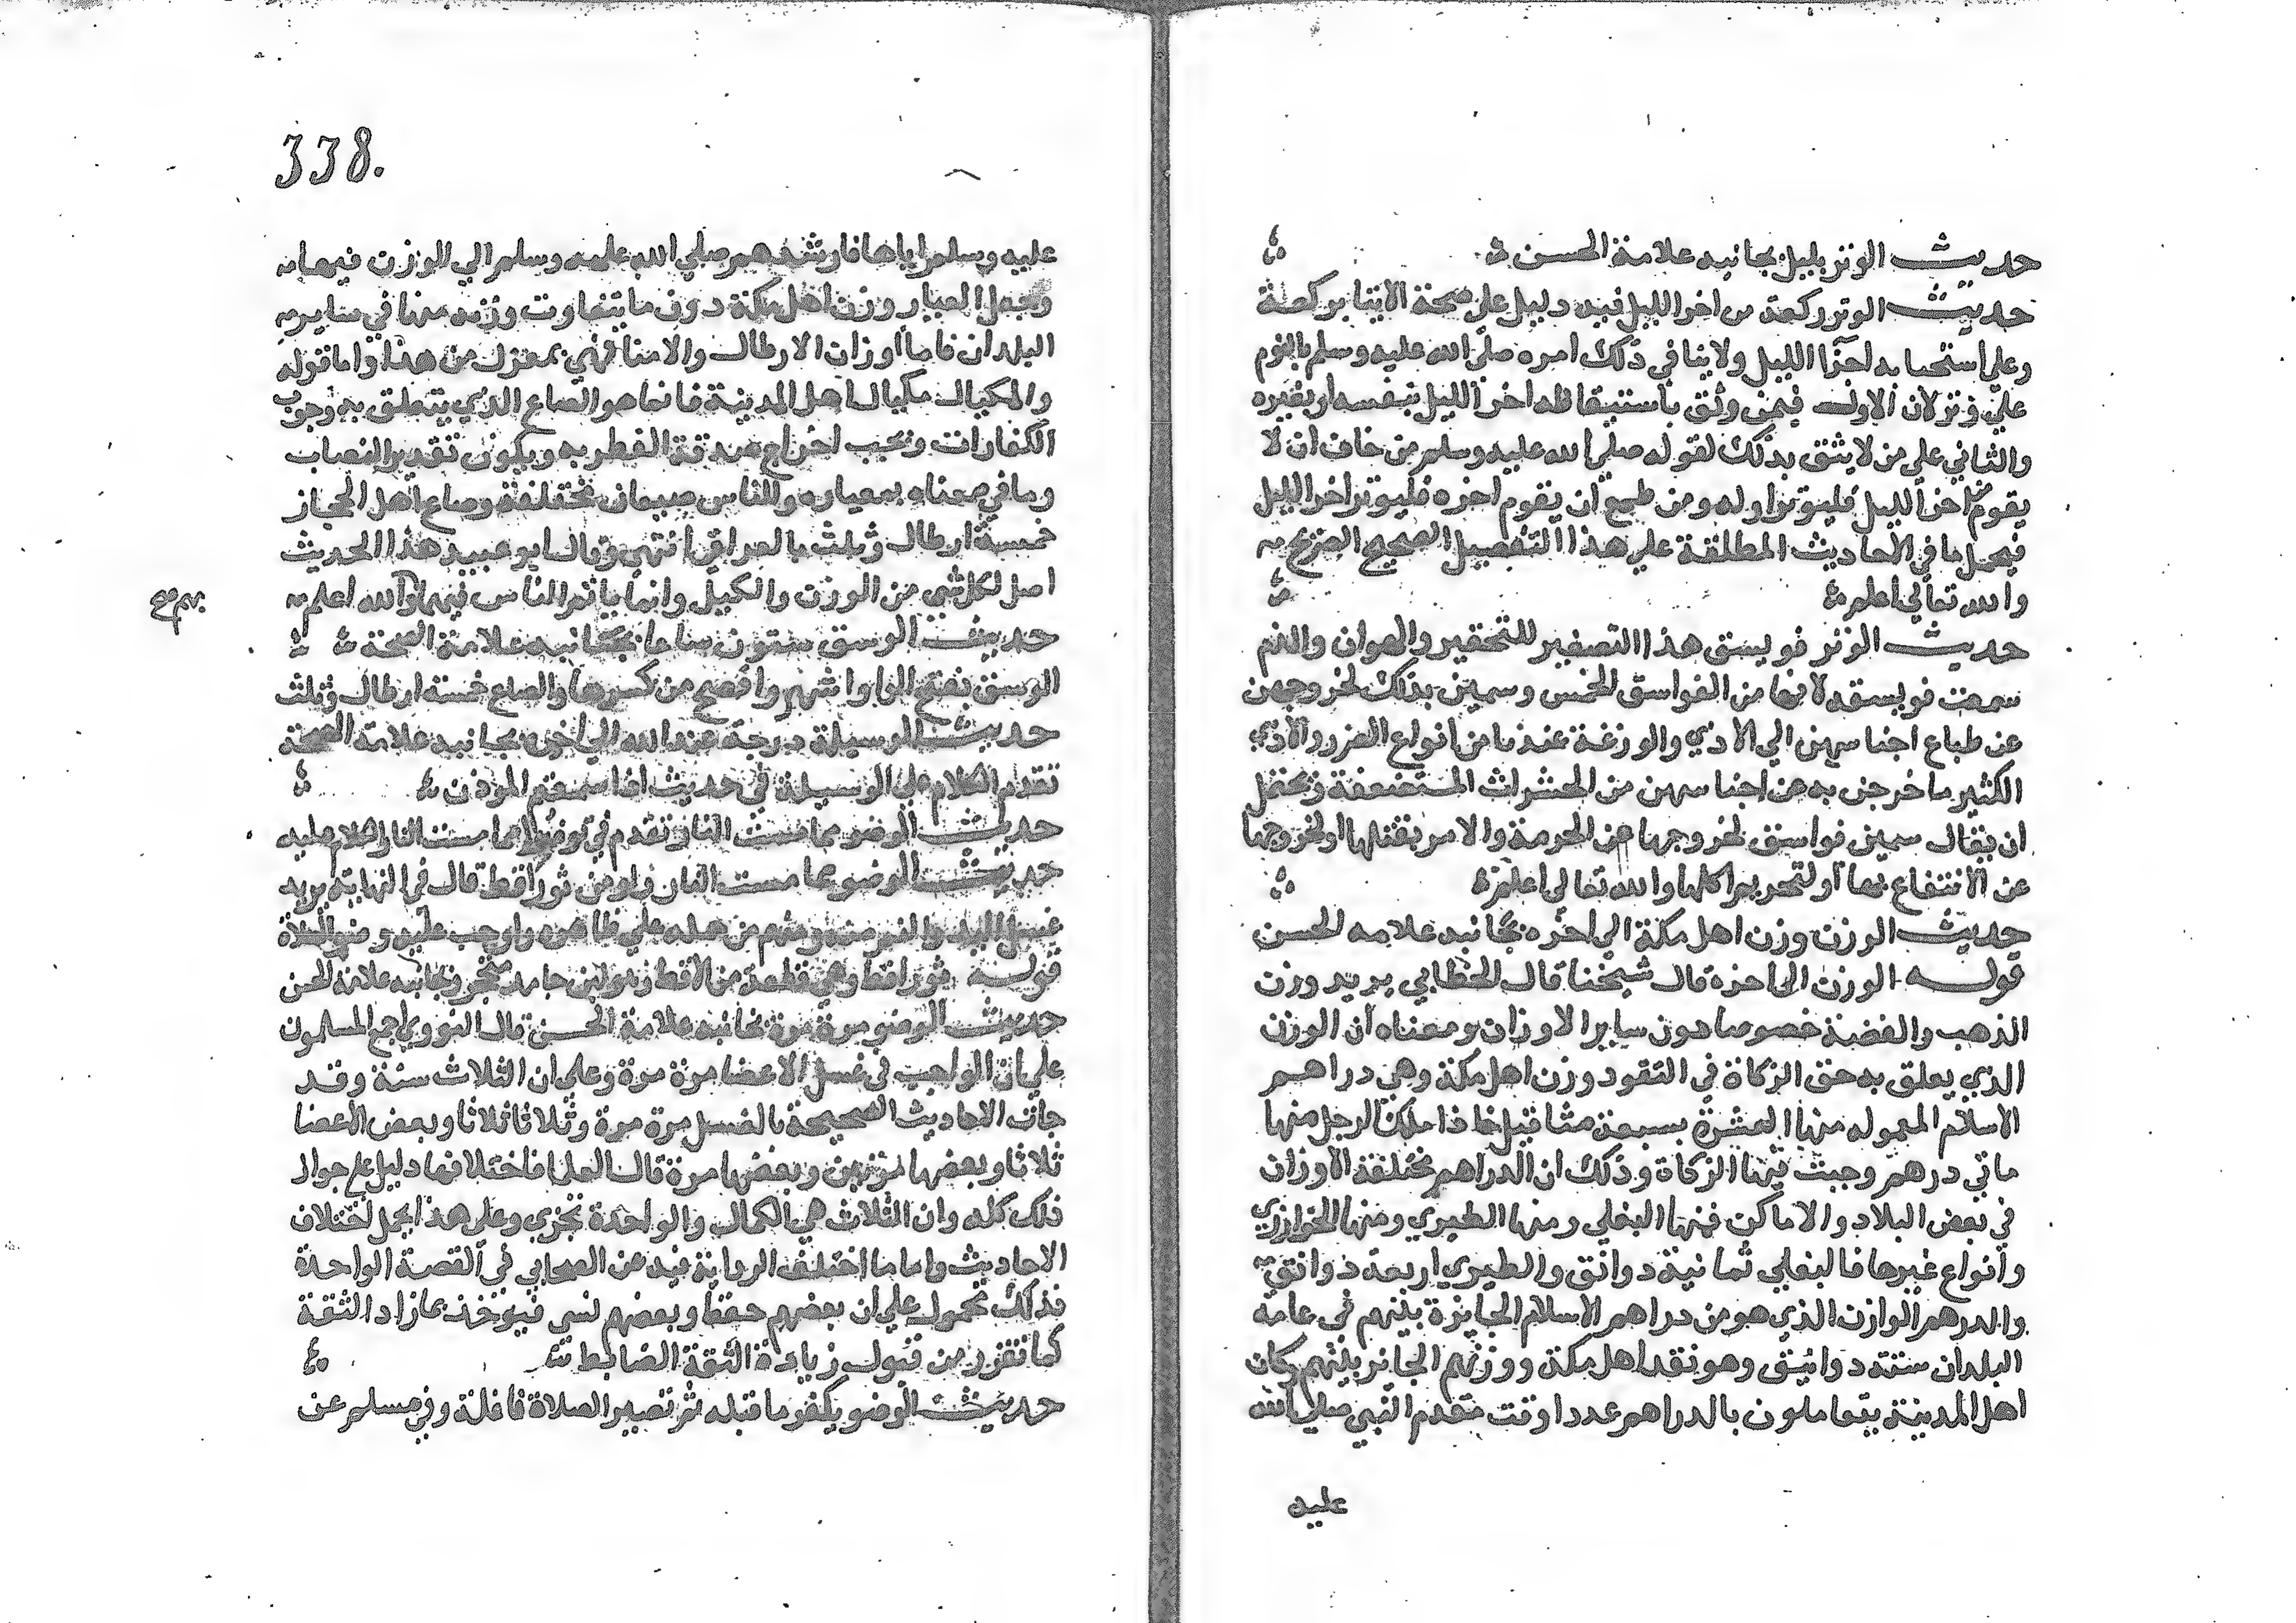 حديث الوتر بليل بجانبه علامة الحسن
حديث الوتر ركعة من اخر الليل فيه دليل على صحة الايتار بركعة
وعلى استحبابه اخر الليل ولا ينافي ذلك امره صلى الله عليه وسلم بالنوم
على وتر لان الاول فيمن وثق باستيقاظه اخر الليل بنفسه او بغيره
والثاني على من لا يثق بذلك لقوله صلى الله عليه وسلم من خاف ان لا
يقوم من اخر الليل فليوتر اوله ومن طمع ان يقوم اخره فليوتر اخر الليل
فيحمل ما في الاحاديث المطلقة على هذا التفصيل الصحيح الصريح
والله تعالى اعلم
حديث الوزغ فويسق هذا التصغير للتحقير والهوان والذم
سميت فويسقه لانها من الفواسق الخمس وسمين بذلك لخروجهن
عن طباع اجناسهن الي الاذي والوزغة عندنا من انواع الضرر والاذي
الكثير ما خرجن به عن اجناسهن من الحشرات المستضعفة ويحتمل
ان يقال سمين فواسق لخروجها عن الحرمة والامر بقتلها او لخروجها
عن الانتفاع بها او لتحريم اكلها والله تعالى اعلم
حديث الوزن وزن اهل مكة الى اخره بجانبه علامه الحسن
قوله الوزن الى اخره قال شيخنا قال الخطابي يريد وزن
الذهب والفضة خصوصا دون ساير الاوزان ومعناه ان الوزن
الذي يعلق به حق الزكاة في النقود وزن اهل مكة وهي دراهم
الاسلام المعموله منها العشرة بسبعة مثاقيل فاذا ملك الرجل منها
ماتي درهم وجبت فيها الزكاة وذلك ان الدراهم مختلفة الاوزان
في بعض البلاد والاماكن فمنها البغلي ومنها الطبري ومنها الخوارزمي
وانواع غيرها فالبغلي ثمانية دوانق والطبري اربعة دوانق
والدرهم الوازن الذي هو من دراهم الاسلام الجايزة بينهم في عامة
البلدان ستة دوانيق وهو نقد اهل مكة ووزنهم الجائز بينهم وكان
اهل المدينة يتعاملون بالدراهم عددا وقت مقدم النبي صلى الله
عليه
338.
عليه وسلم اياها فارشدهم صلي الله عليه وسلم الي الوزن فيها
وجعل العيار وزن اهل مكة دون ما يتفاوت وزنه منها في ساير
البلدان فاما اوزان الارطال والامنا فهي بمعزل من هذا واما قوله
والمكيال مكيال اهل المدينة فانما هو الصاع الذي يتعلق به وجوب
الكفارات ويجب اخراج صدقة الفطر به ويكون تقدير النصاب
وما في معناه بمعياره وللناس صيعان مختلفة وصاع اهل الحجاز
خمسة ارطال وثلث بالعراقي انتهى وقال ابو عبيد هذا الحديث
اصل لكل شي من الوزن والكيل وانما ياتم الناس فيهما والله اعلم
بهم صح
حديث الوسق ستون صاعا بجانبه علامة الصحة
الوسق بفتح الواو اشهر وافصح من كسرها والصاع خمسة ارطال وثلث
حديث الوسيلة درجة عند الله الي اخره بجانبه علامة الصحة
تقدم الكلام على الوسيلة في حديث اذا سمعتم الموذن
حديث الوضو مما مست النار تقدم في توضوا مما مست النار الكلام عليه
حديث الوضو مما مست النار ولو من ثور اقط قال في النهاية يريد
غسل اليد والفم منه ومنهم من حمله على ظاهره واوجب عليه وضو الصلاة
قوله ثور اقط وهي قطعة من الاقط وهو لبن جامد مستحجر وبجانبه علامة الحسن
حديث الوضو مرة مرة بجانبه علامة الحسن قال النووي اجمع المسلمون
على ان الواجب في غسل الاعضا مرة مرة وعلى ان الثلاث سنة وقد
جات الاحاديث الصحيحة بالغسل مرة مرة وثلاثا ثلاثا وبعض الاعضا
ثلاثا وبعضها مرتين وبعضها مرة قال العلما فاختلافها دليل على جواز
ذلك كله وان الثلاث هي الكمال والواحدة تجزي وعلى هذا يحمل اختلاف
الاحاديث واما ما اختلف الرواية فيه عن الصحابي في القصة الواحدة
فذلك محمول على ان بعضهم حفظ وبعضهم نسي فيوخذ بما زاد الثقة
كما تقرر من قبول زيادة الثقة الضابط
حديث الوضو يكفر ما قبله ثم تصير الصلاة نافلة وفي مسلم عن